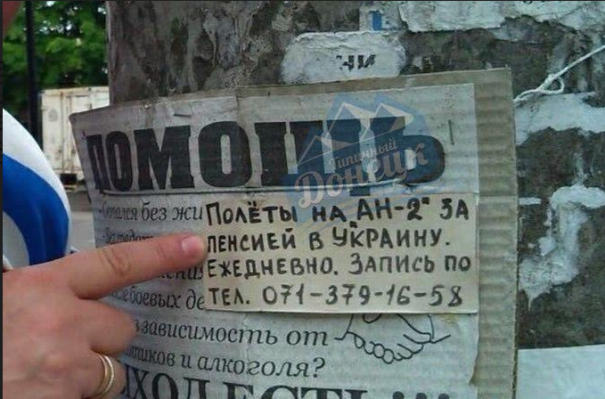 НИ
ПОМОЩЬ
Типичный
Донецк
без жи
ПОЛЁТЫ НА „АН-2" ЗА
ПЕНСИЕЙ В УКРАИНУ.
ЕЖЕДНЕВНО. ЗАПИСЬ ПО
ТЕЛ. 071-379-16-58
боевых де
зависимость от
и алкоголя?
ЕСТЬ!!!